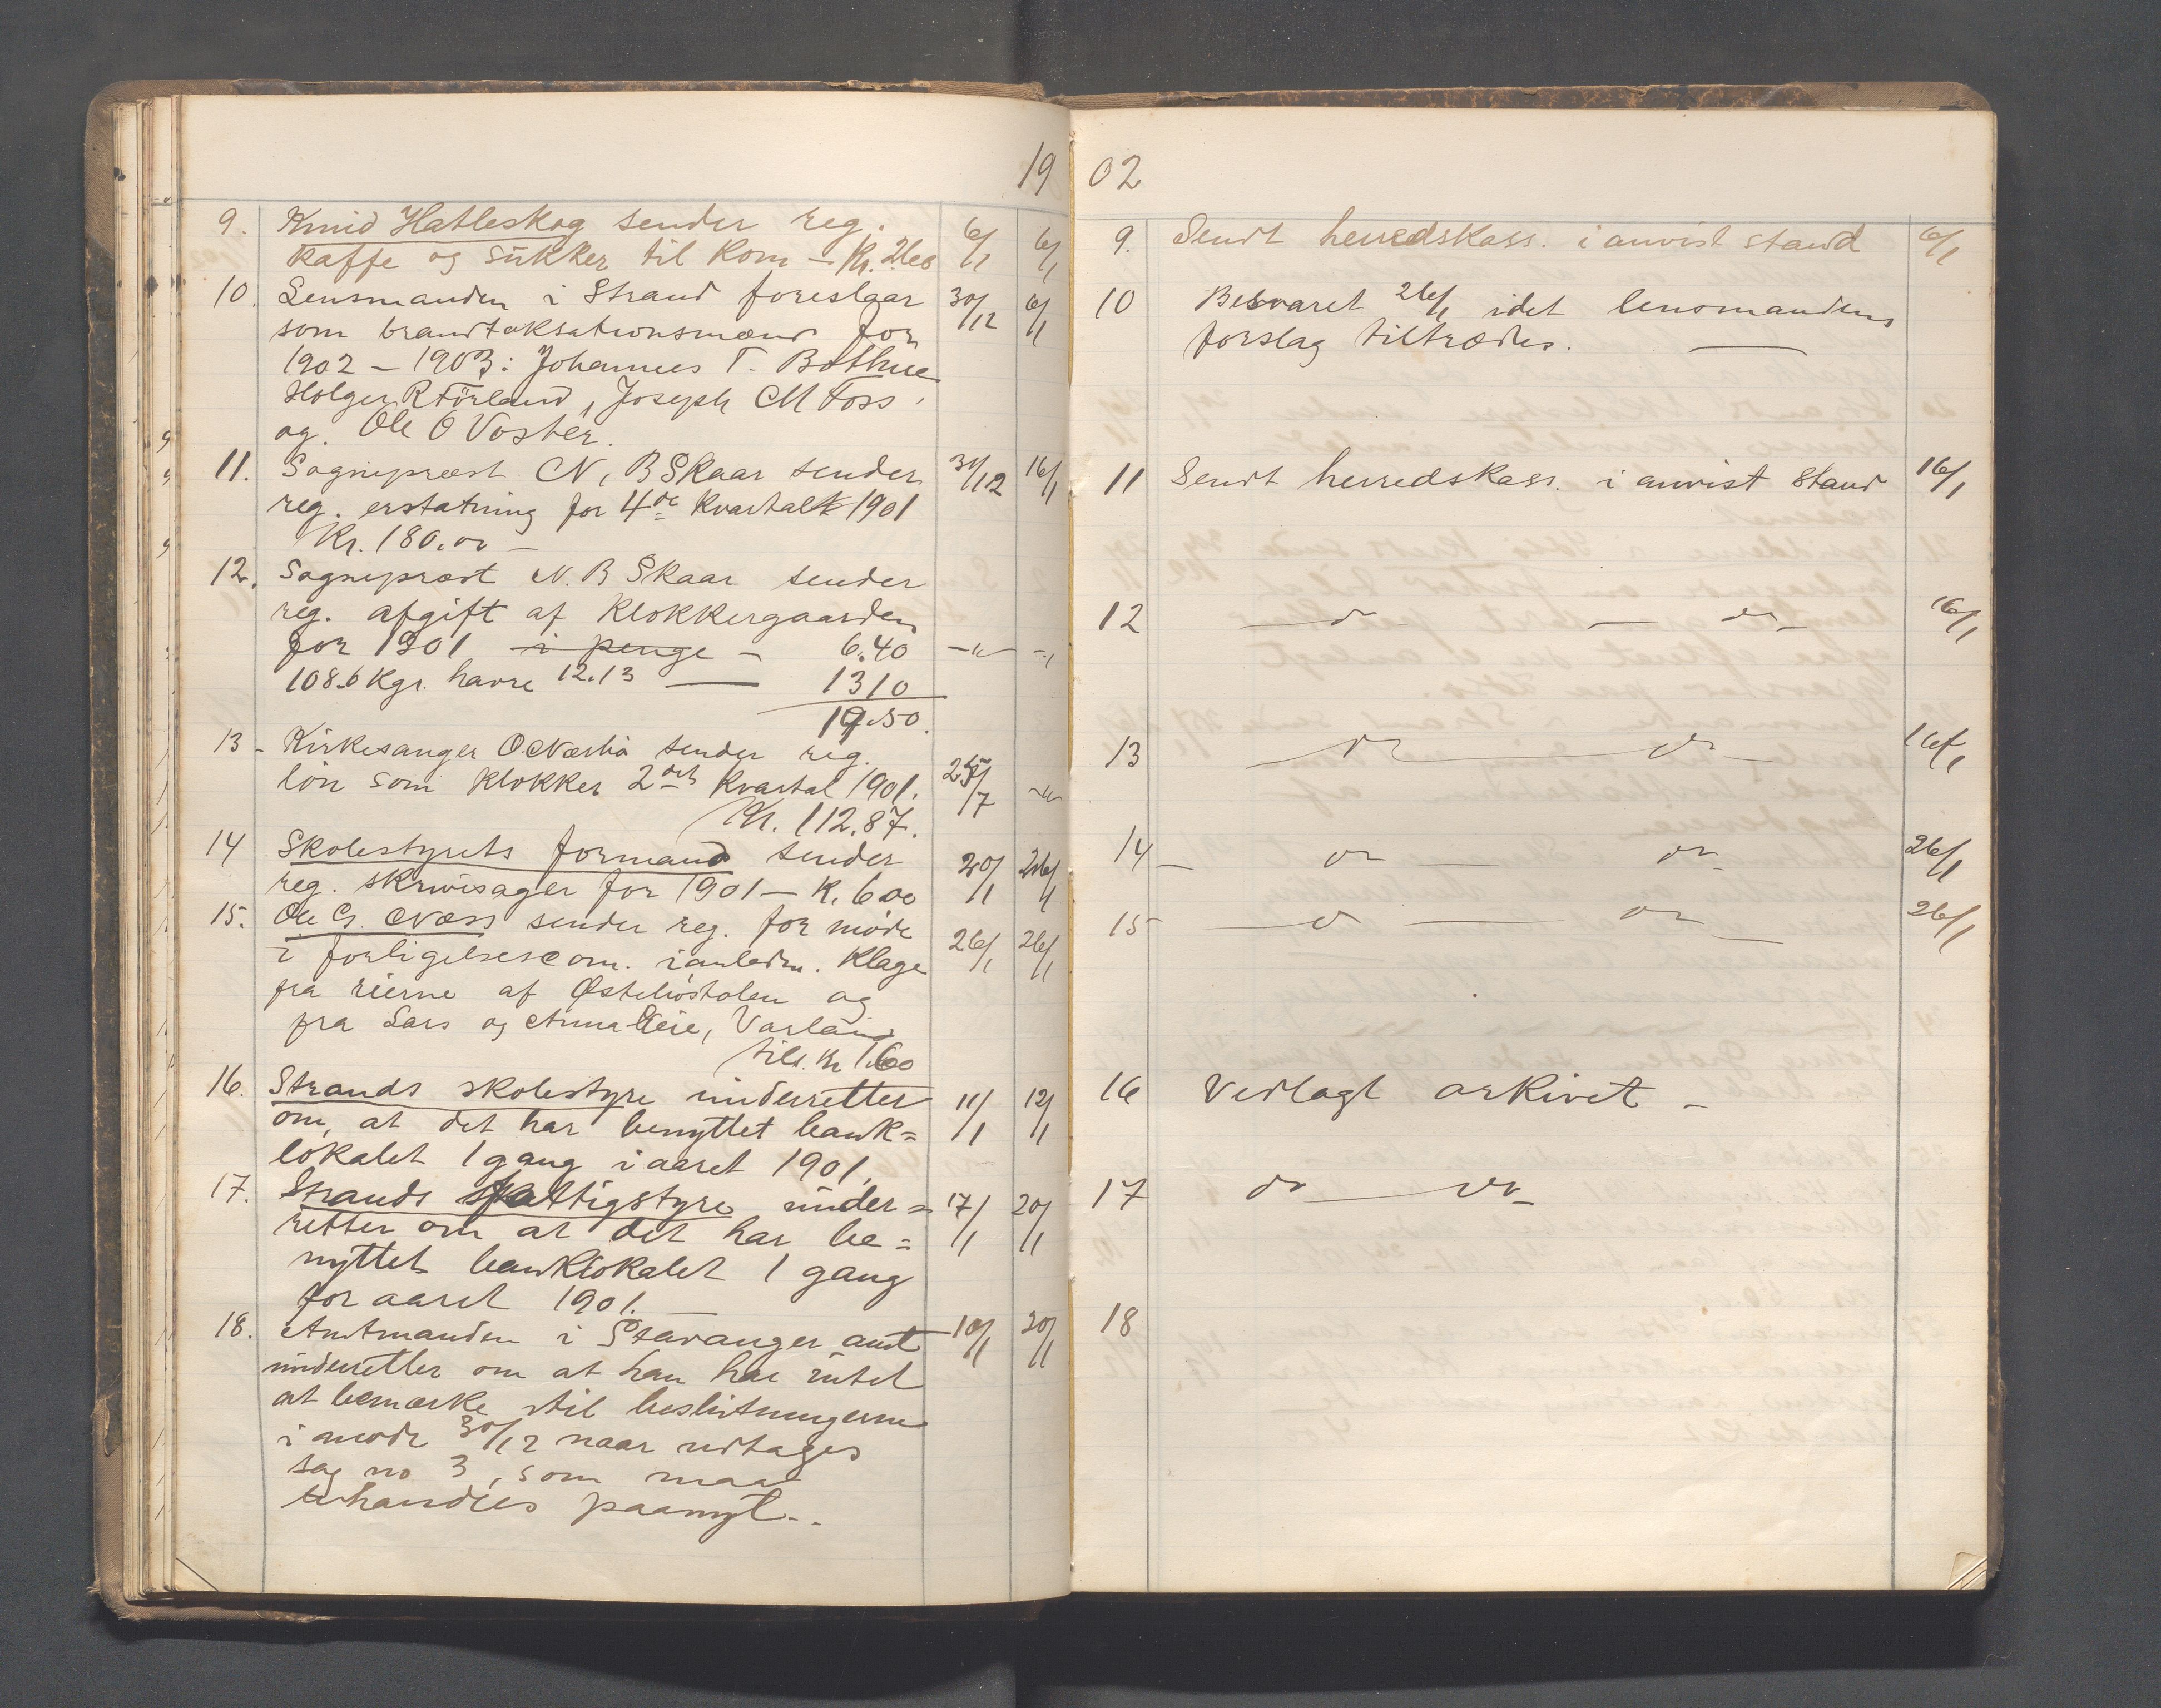 1902
9. Knud Hatleskog sender reg. 6/1 6/1
kaffe og sukker til kom – Kr. 2.60
10. Lensmanden i Strand foreslaar 30/12 6/1
som brandtakstationsmænd for
1902 – 1903: Johannes T. Bothne
Holger R Førland, Joseph M Foss,
og Ole O Voster.
11. Sognepræst N. B Skaar sender 31/12 16/1
reg. erstatning for 4de kvartal 1901
Kr. 180.00 –
12. Sognepræst N. B Skaar sender
reg. afgift af Klokkergaarden
for 1901 i penge – 6.40 –"– –"
108.6 kgr. havre 12.13 — 1310
19.50.
13 – Kirkesanger O. Næsbø sender reg.
løn som klokker 2det kvartal 1901. 25/7 –"–
Kr. 112.87.
14 Skolestyrets formand sender 20/1 26/1
reg. skrivesager for 1901 – K. 6.00
15. Ole G. Næss sender reg. for møde 26/1 26/1
i forligelsescom. i anledn. klage
fra eierne af Østehusstølen og
fra Lars og Anna Leie, Varland
tils. kr 1.60
16. Strands skolestyre underretter 11/1 12/1
om, at det har benyttet bank=
lokalet 1 gang i aaret 1901.
17. Strands fattigstyre under= 17/1 20/1
retter om at det har be=
nyttet banklokalet 1 gang
for aaret 1901. —
18. Amtmanden i Stavanger amt 10/1 20/1
underretter om at han har intet
at bemærke til beslutningerne
i møde 30/12 naar undtages
sag no 3, som maa
behandles paanyt..
9. Sendt herredskass. i anvist stand 6/1
10 Besvaret 26/1 idet lensmandens
forslag tiltrædes. —
11 Sendt herredskass. i anvist stand 16/1
12 — do — do — 16/1
13 — do — do — 16/1
14 — do — do — 26/1
15 — do — do — 26/1
16 Vedlagt arkivet –
17 do — do –
18